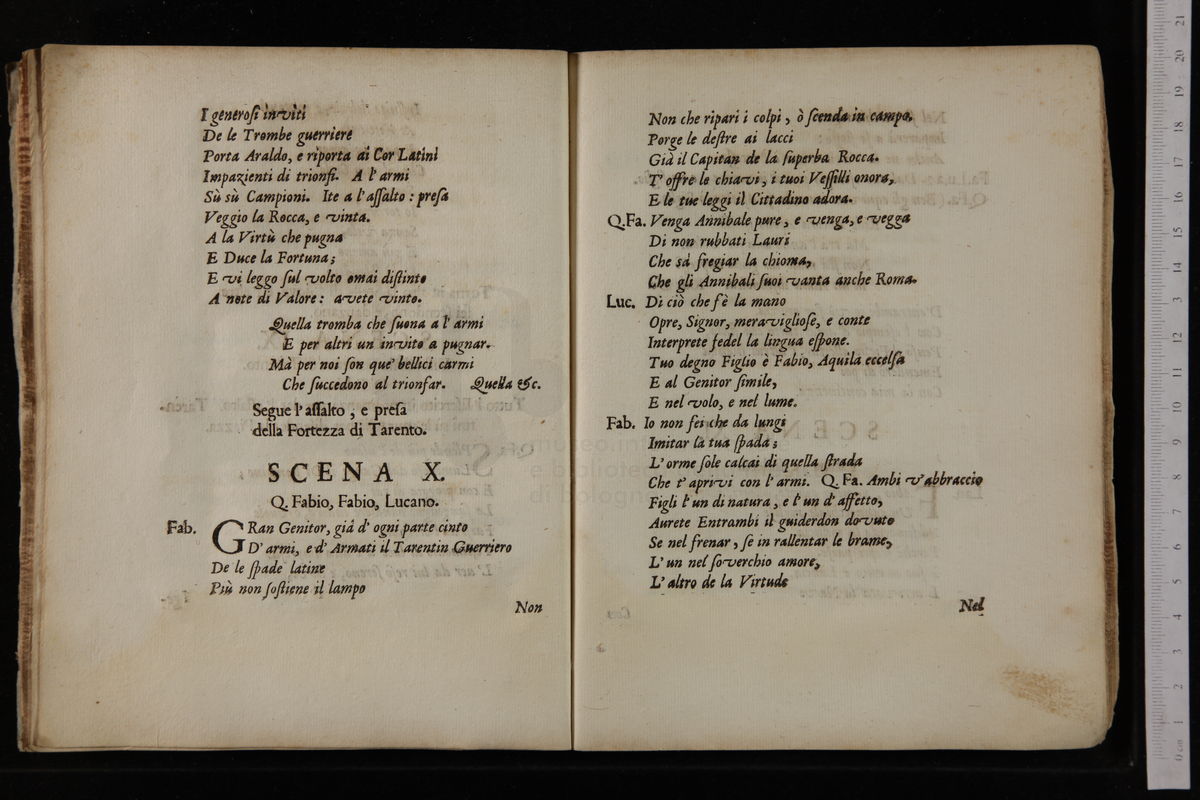 I generoſi inviti
De le Trombe guerriere
Porta Araldo, e riporta ai Cor Latini
Impazienti di trionfi. A l' armi
Sù sù Campioni. Ite a l'aſſalto : preſa
Veggio la Rocca, e vinta.
A la Virtù che pugna
E Duce la Fortuna;
E vi leggo ſul volto omai diſtinto
A note di Valore: avete vinto.
Quella tromba che ſuona a l' armi
E per altri un invito a pugnar.
Mà per noi ſon que' bellici carmi
Che ſuccedono al trionfar. Quella &c.
Segue l'aſſalto, e preſa
della Fortezza di Tarento.
SCENA X.
Q. Fabio, Fabio, Lucano.
Fab. GRan Genitor, giá d' ogni parte cinto
D' armi, e d' Armati il Tarentin Guerriero
De le ſpade latine
Più non ſoſtiene il lampo
Non
Non che ripari i colpi, ò ſcenda in campo.
Porge le deſtre ai lacci
Già il Capitan de la ſuperba Rocca.
T' offre le chiavi, i tuoi Veſſilli onora,
E le tue leggi il Cittadino adora.
Q.Fa. Venga Annibale pure, e venga, e vegga
Di non rubbati Lauri
Che sà fregiar la chioma,
Che gli Annibali ſuoi vanta anche Roma.
Luc. Di ciò che fè la mano
Opre, Signor, meraviglioſe, e conte
Interprete fedel la lingua eſpone.
Tuo degno Figlio è Fabio, Aquila eccelſa
E al Genitor ſimile,
E nel volo, e nel lume.
Fab. Io non fei che da lungi
Imitar la tua ſpada;
L' orme ſole calcai di quella ſtrada
Che t' aprivi con l' armi. Q. Fa. Ambi v' abbraccio
Figli l' un di natura, e l' un d' affetto,
Aurete Entrambi il guiderdon dovuto
Se nel frenar, ſe in rallentar le brame,
L' un nel ſoverchio amore,
L' altro de la Virtude
Nel